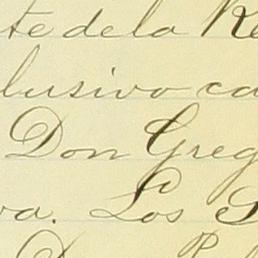 te de la Re
lusivo ca
Don Greg
va. Los S